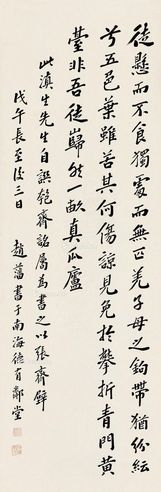 徒懸而不食獨處而無匹羌子母之鉤帶猶紛紜
兮五色葉雖苦其何傷諒見免於攀折青門黃
臺非吾徒歸於一畝真瓜廬
此滇生先生自譔匏齋銘屬為書之以張齋壁
戊午長至後三日
趙藩書于南海德有鄰堂